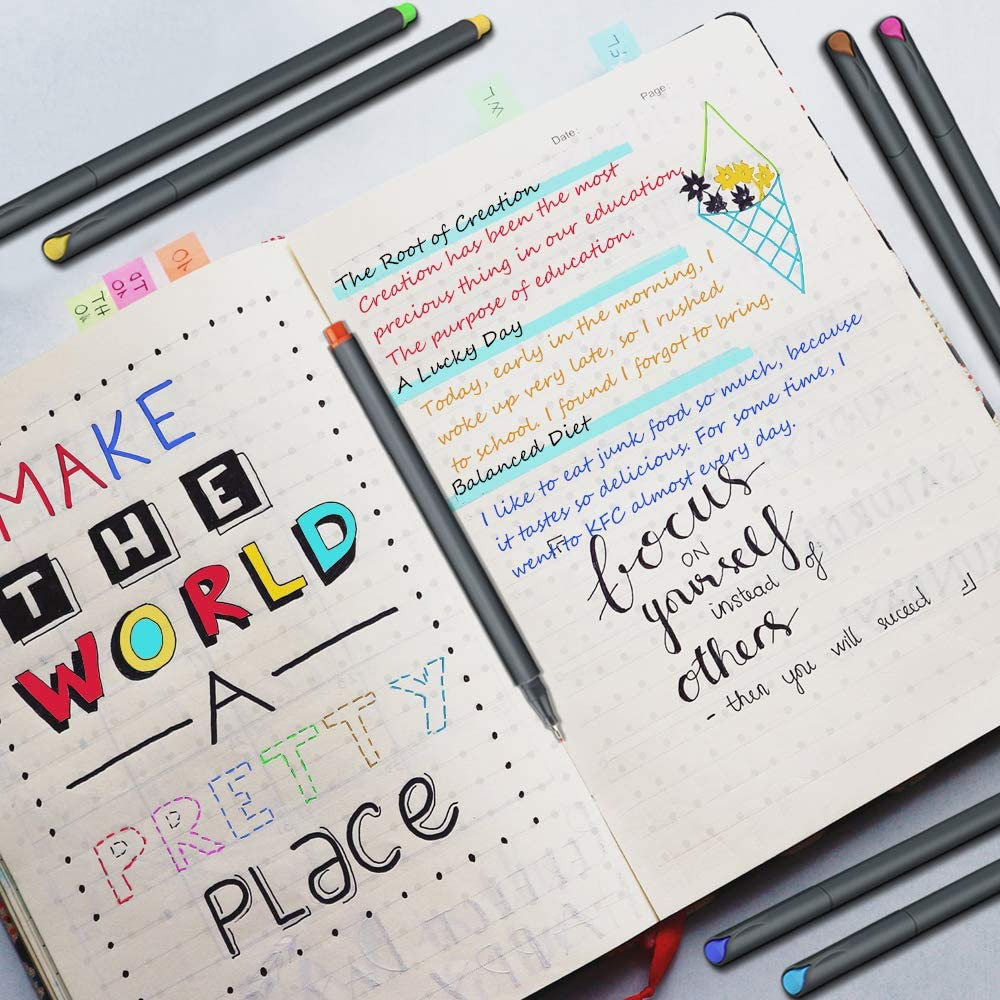 MAKE
THE
WORLD
A
PRETTY
PLace
Date:
Page
The Root of Creation
Creation has been the most
precious thing in our education,
The purpose of education.
A Lucky Day
Today, early in the morning, I
woke up very late, so I rushed
to school. I found I forgot to bring.
Balanced Diet
I like to eat junk food so much, because
it tastes so delicious. For some time, I
went to KFC almost every day.
focus
ON
yourself
instead of
others
- then you will succeed